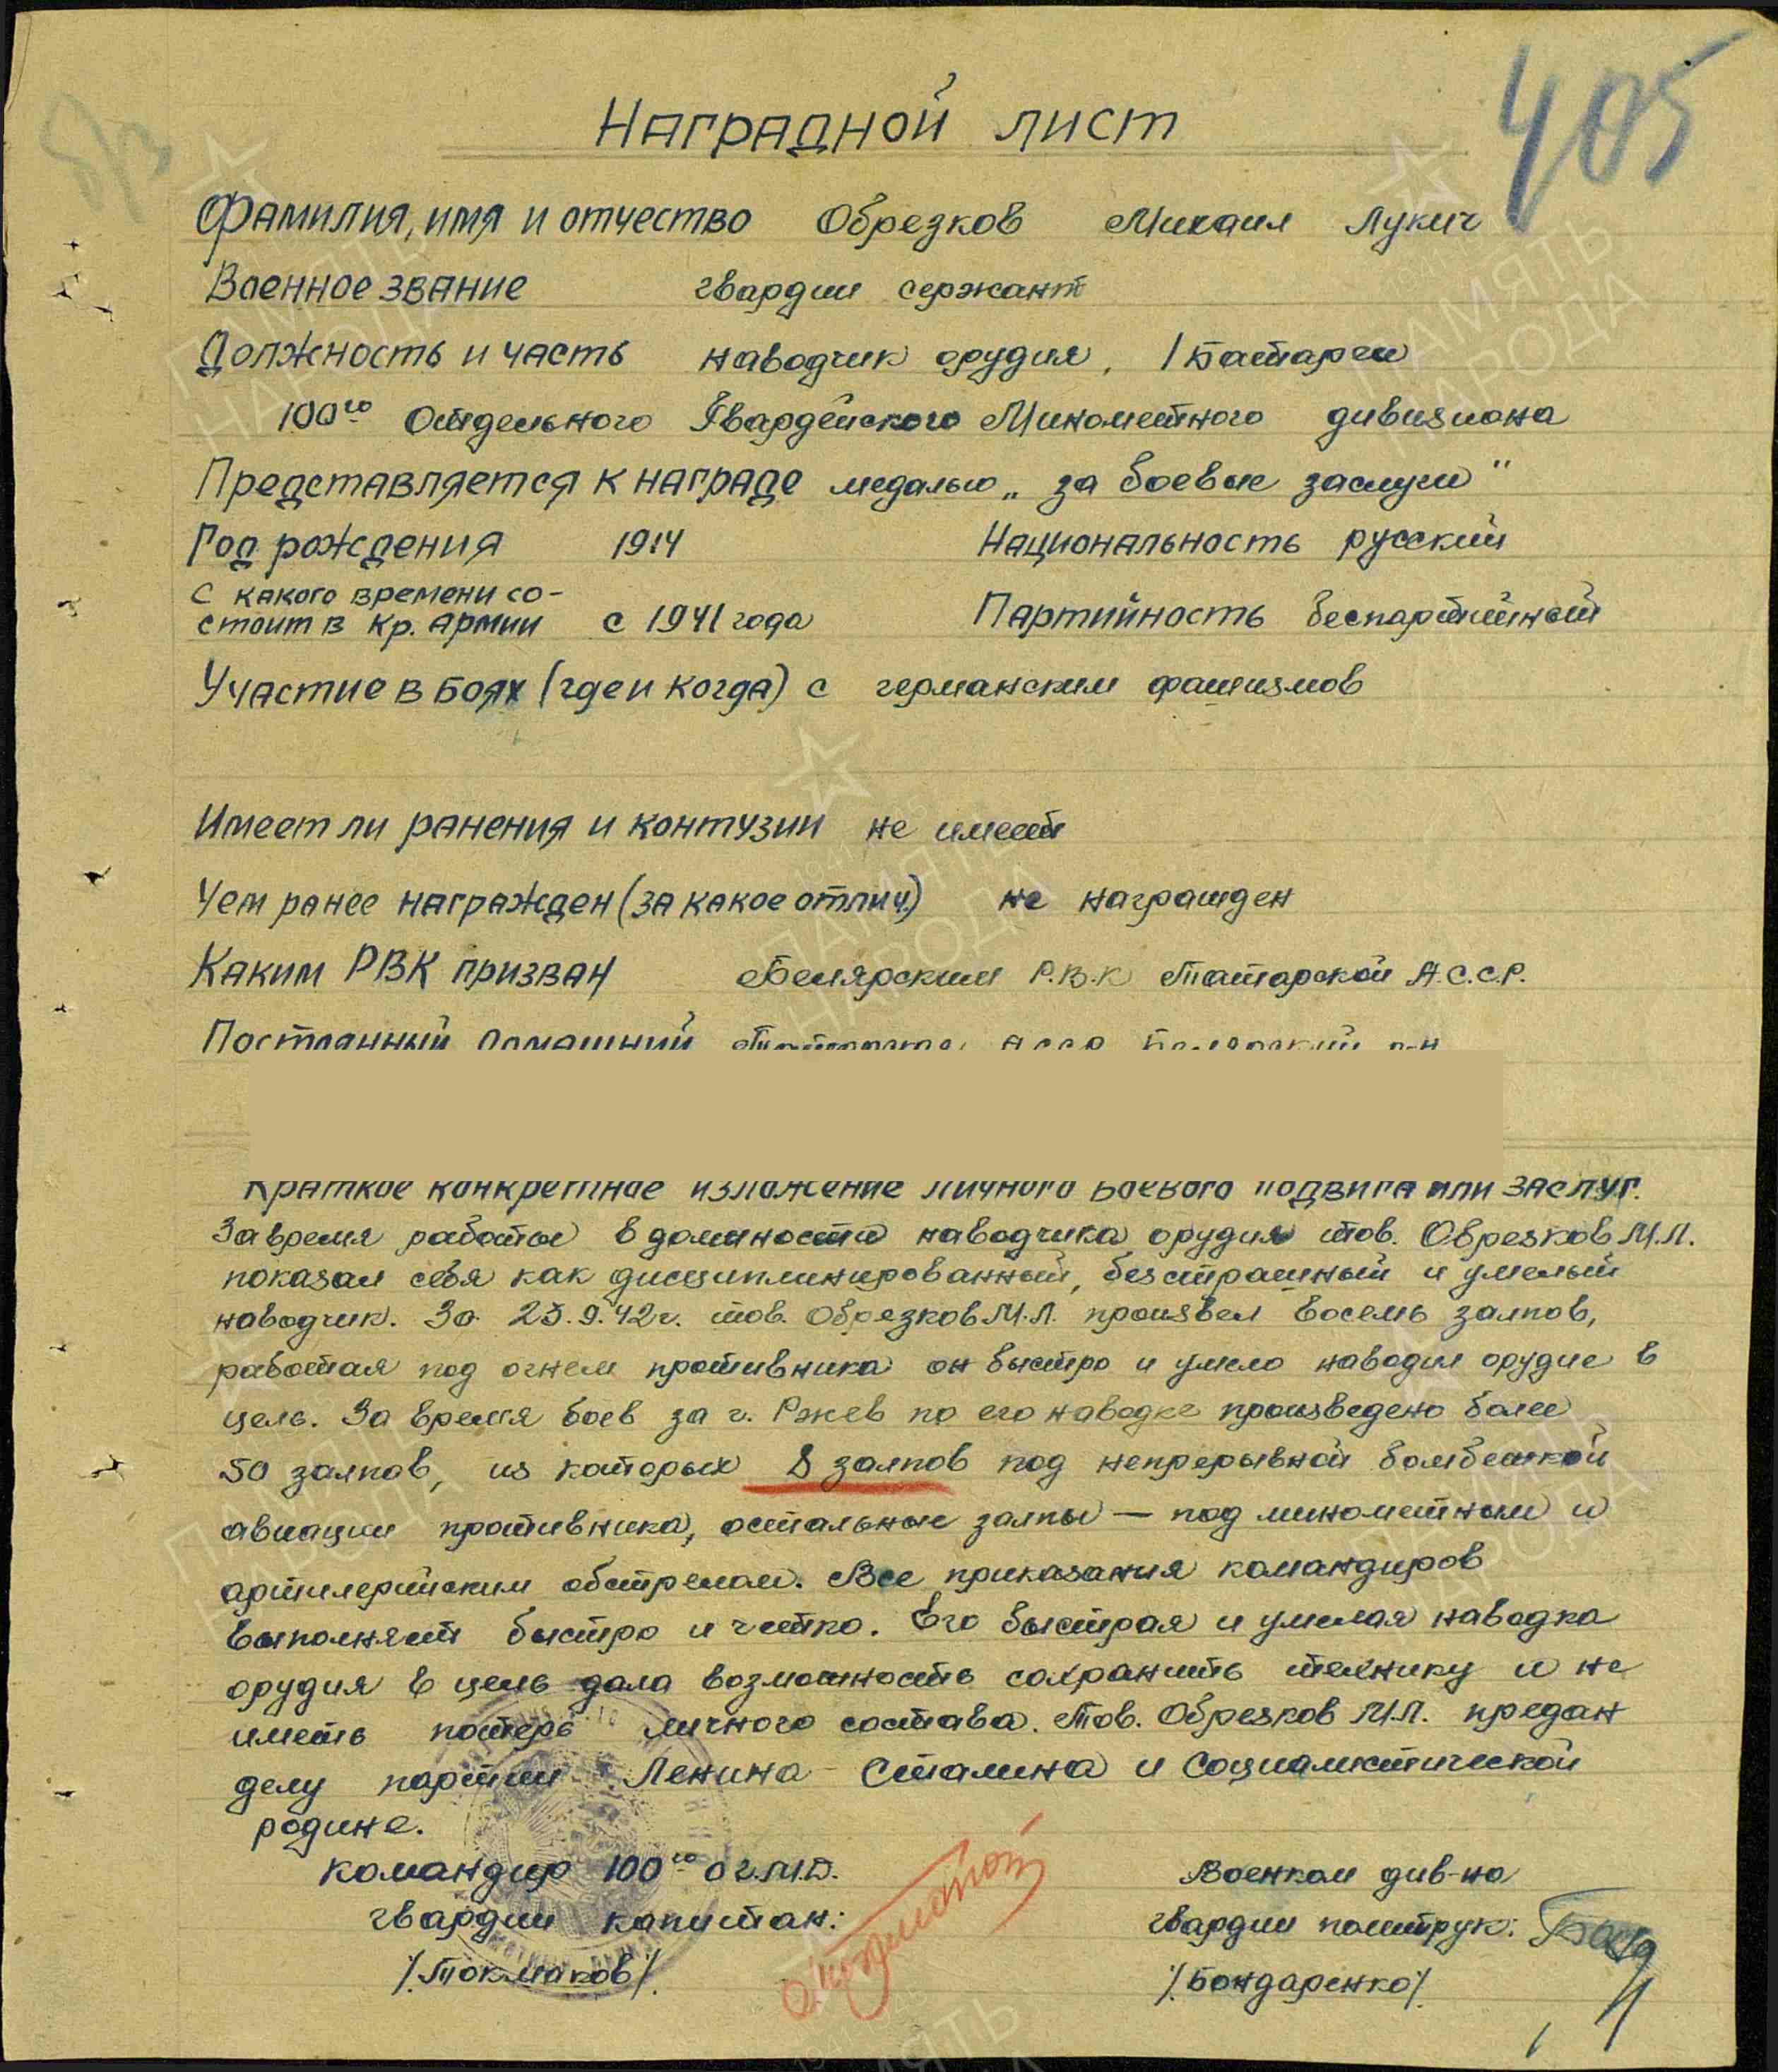 405
Наградной лист
Фамилия, имя и отчество Обрезков Михаил Лукич
Военное звание гвардии сержант
Должность и часть наводчик орудия, 1 Батареи
100го Отдельного Гвардейского Минометного дивизиона
Представляется к награде медалью „за боевые заслуги"
Год рождения 1914 Национальность русский
С какого времени со-
стоит в Кр. Армии с 1941 года Партийность беспартийный
Участие в боях (где и когда) с германским фашизмов
Имеет ли ранения и контузии не имеет
Чем ранее награжден (за какое отлич.) не награжден
Каким РВК призван Билярским Р.В.К Татарской А.С.С.Р.
Постоянный домашний Татарская АССР Билярский р-н
Краткое конкретное изложение личного боевого подвига или заслуг.
За время работы в должности наводчика орудия тов. Обрезков М.Л.
показал себя как дисциплинированный, безстрашный и умелый
наводчик. За 23.9.42г. тов. Обрезков М.Л. произвел восемь залпов,
работая под огнем противника он быстро и умело наводил орудие в
цель. За время боев за г. Ржев по его наводке произведено более
50 залпов, из которых 8 залпов под непрерывной бомбежкой
авиации противника, остальные залпы — под минометным и
артилерийским обстрелом. Все приказания командиров
выполняет быстро и четко. Его быстрая и умелая наводка
орудия в цель дала возможность сохранить технику и не
иметь потерь личного состава. Тов. Обрезков М.Л. предан
делу партии Ленина - Сталина и Социалистической
родине.
Командир 100го О.Г.М.Д. Военком див-на
гвардии капитан: гвардии политрук:
/Токмаков/ /Бондаренко/
ПАМЯТЬ
НАРОДА